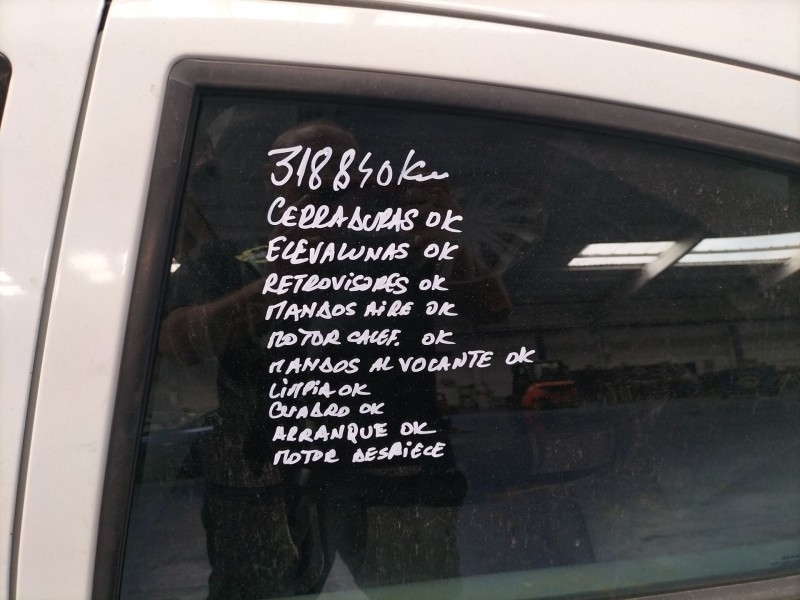 318840Km
CERRADURAS OK
ELEVALUNAS OK
RETROVISORES OK
MANDOS AIRE OK
MOTOR CALEF. OK
MANDOS AL VOLANTE OK
LIMPIA OK
CUADRO OK
ARRANQUE OK
MOTOR DESPIECE